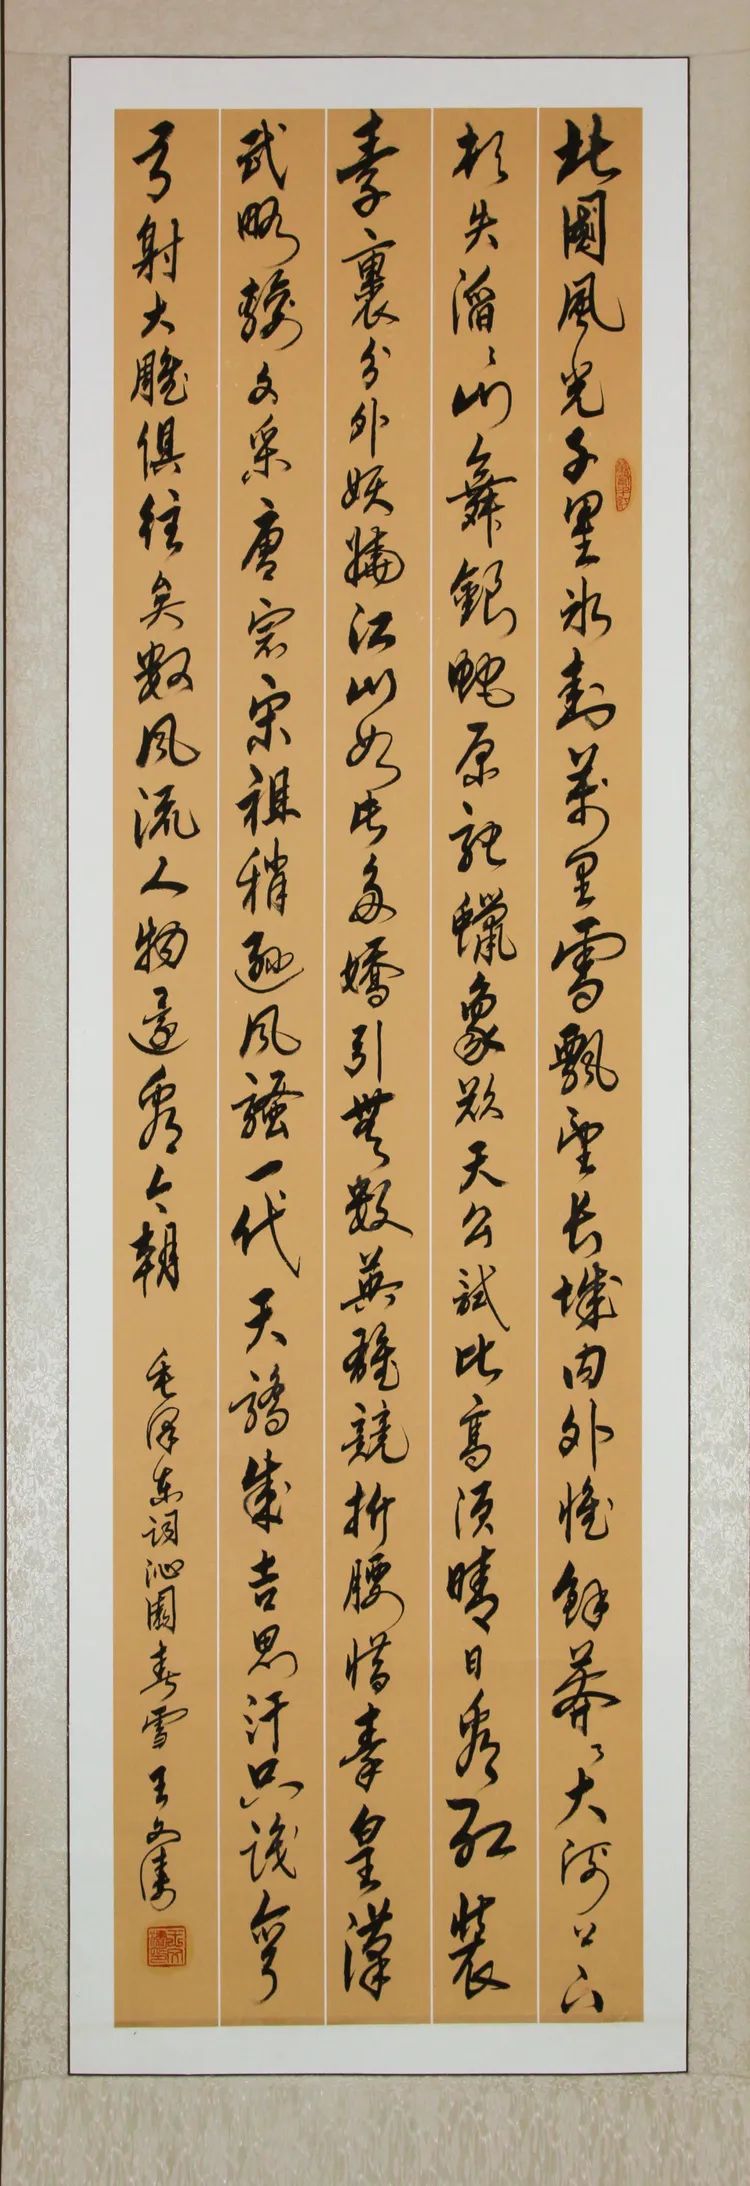 北國風光千里冰封萬里雪飄望長城内外惟餘莽〻大河上下
頓失滔〻山舞銀蛇原馳蠟象欲天公試比高須晴日看紅裝
素裹分外妖嬈江山如此多嬌引無數英雄競折腰惜秦皇漢
武略輸文采唐宗宋祖稍遜风騷一代天驕成吉思汗只識彎
弓射大雕俱往矣數风流人物還看今朝 毛泽东词沁園春雪 王文